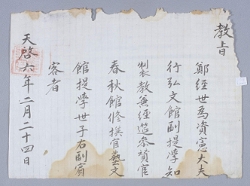 教旨
鄭經世爲資憲大夫
行弘文館副提學知
製教兼經筵參贊官
春秋館修撰官藝文
館提學世子右副賓
客者
天啓六年二月二十四日